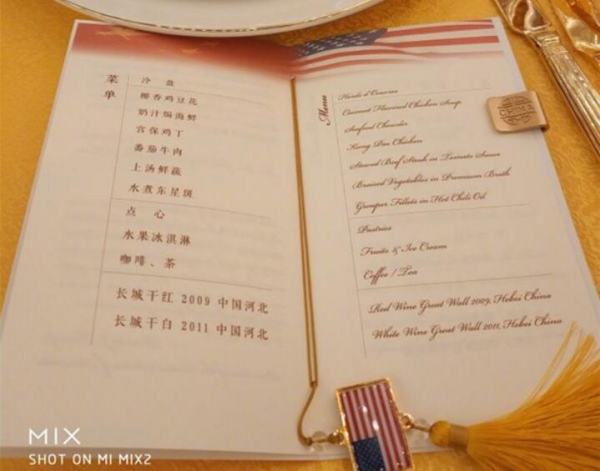 菜单
冷盘
椰香鸡豆花
奶汁焗海鲜
宫保鸡丁
番茄牛肉
上汤鲜蔬
水煮东星斑
点心
水果冰淇淋
咖啡、茶
长城干红 2009 中国河北
长城干白 2011 中国河北
Menu
Hors d'Oeuvres
Coconut Flavored Chicken Soup
Seafood Chowder
Kung Pao Chicken
Stewed Beef Steak in Tomato Sauce
Braised Vegetables in Premium Broth
Grouper Fillets in Hot Chili Oil
Pastries
Fruits & Ice Cream
Coffee / Tea
Red Wine Great Wall 2009, Hebei China
White Wine Great Wall 2011, Hebei China
MIX
SHOT ON MI MIX2